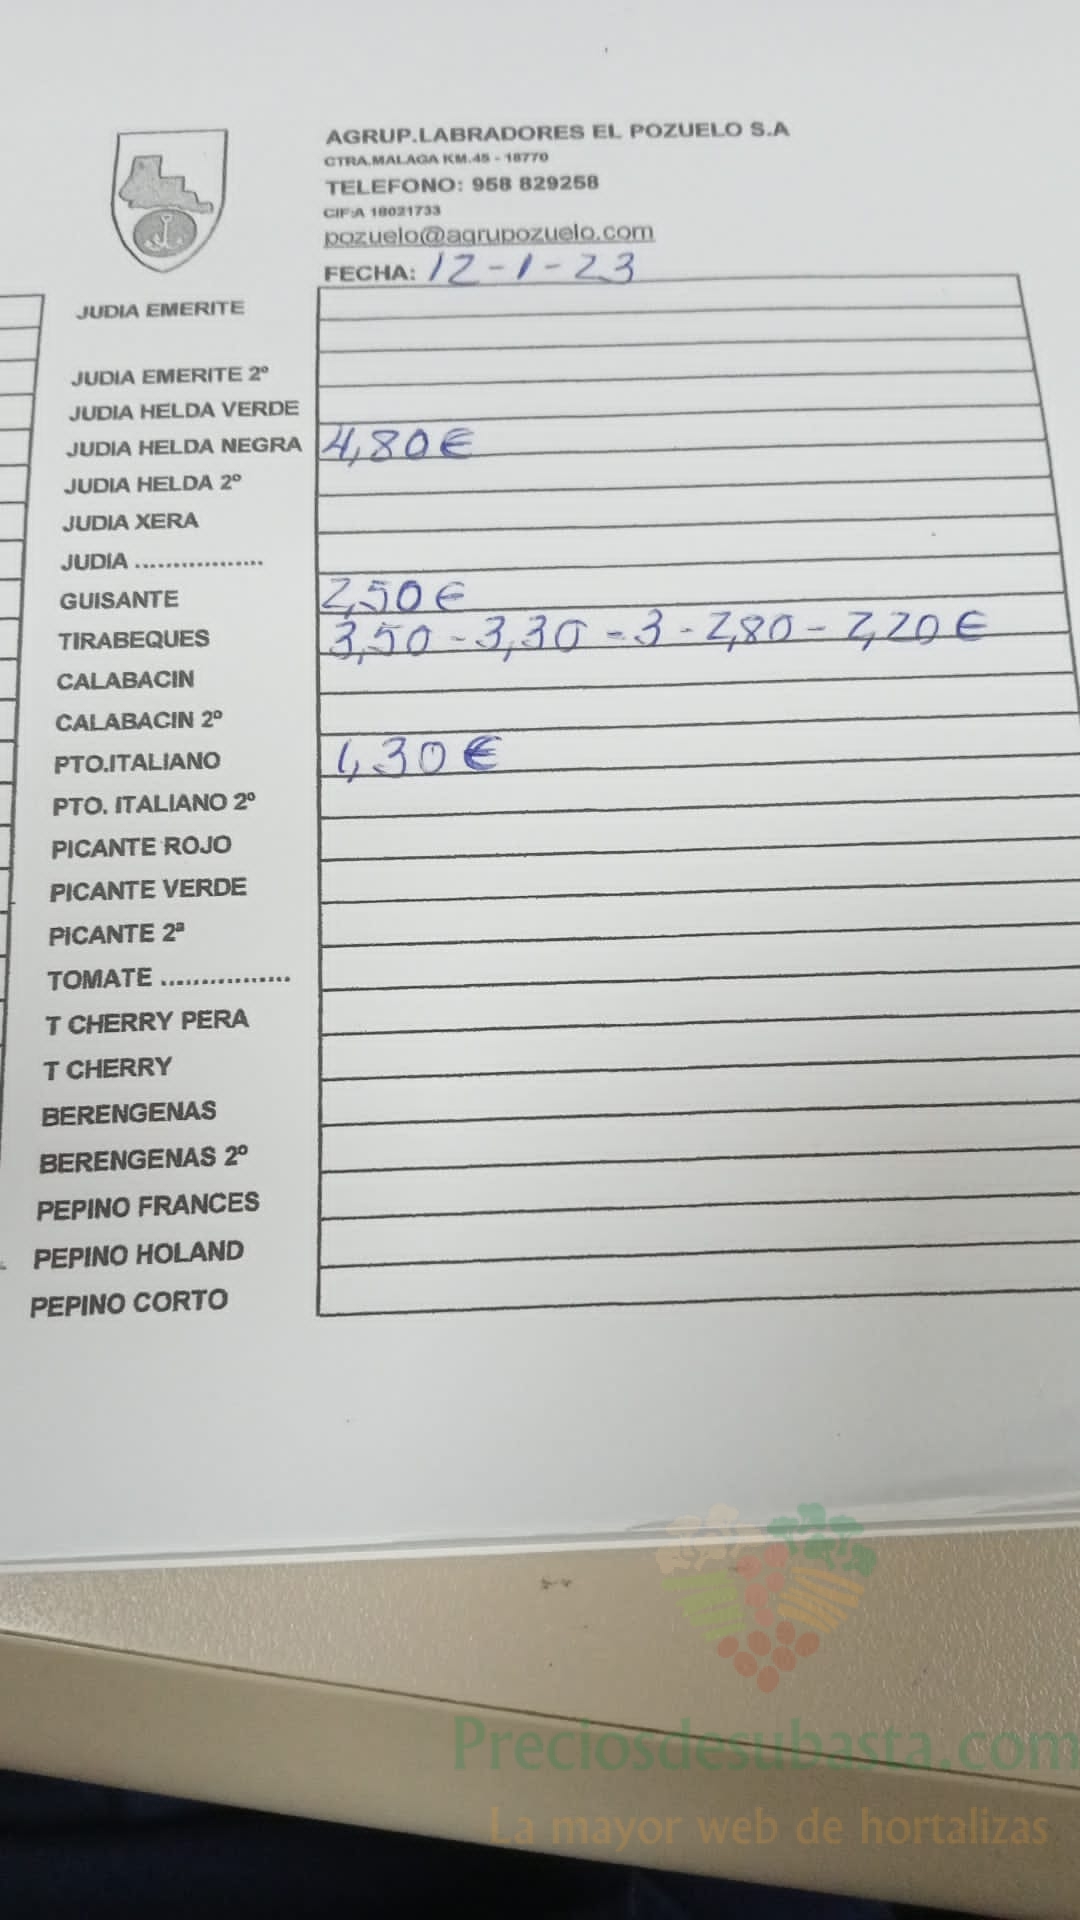 AGRUP.LABRADORES EL POZUELO S.A
CTRA.MALAGA KM.45 - 18770
TELEFONO: 958 829258
CIF:A 18021733
pozuelo@agrupozuelo.com
FECHA: 12-1-23
JUDIA EMERITE
JUDIA EMERITE 2º
JUDIA HELDA VERDE
JUDIA HELDA NEGRA 4,80€
JUDIA HELDA 2º
JUDIA XERA
JUDIA ................
GUISANTE 2,50€
TIRABEQUES 3,50 - 3,30 - 3 - 2,80 - 2,20 €
CALABACIN
CALABACIN 2º
PTO.ITALIANO 1,30€
PTO. ITALIANO 2º
PICANTE ROJO
PICANTE VERDE
PICANTE 2ª
TOMATE ................
T CHERRY PERA
T CHERRY
BERENGENAS
BERENGENAS 2º
PEPINO FRANCES
PEPINO HOLAND
PEPINO CORTO
Preciosdesubasta.com
La mayor web de hortalizas